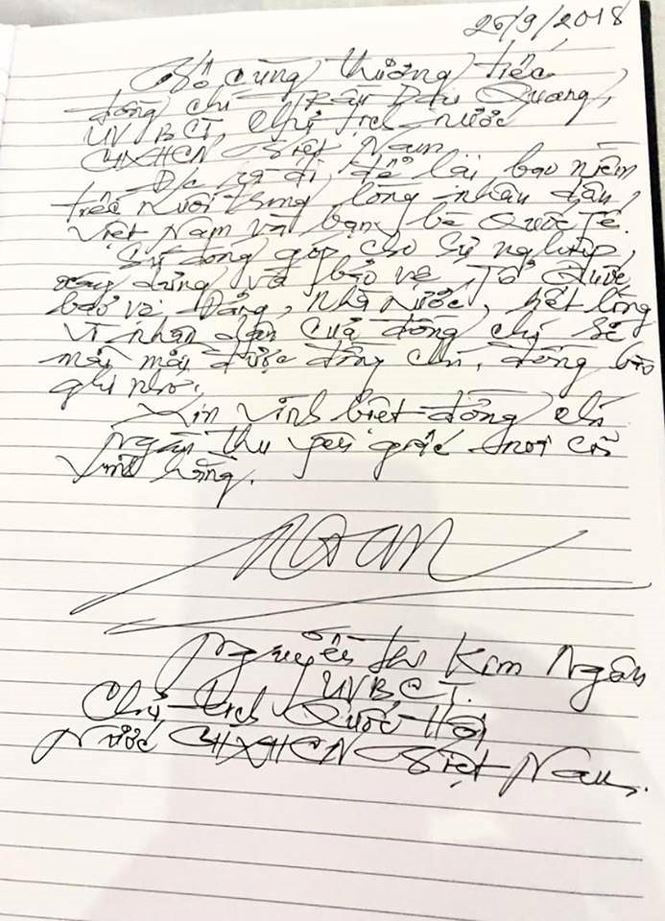 26/9/2018
Vô cùng thương tiếc
đồng chí Trần Đại Quang,
UVBCT, Chủ tịch nước
CHXHCN Việt Nam
Đ/c ra đi, để lại bao niềm
tiếc nuối trong lòng nhân dân
Việt Nam và bạn bè Quốc tế.
Sự đóng góp cho sự nghiệp
xây dựng và bảo vệ Tổ Quốc
bảo vệ Đảng, Nhà nước, hết lòng
vì nhân dân của đồng chí sẽ
mãi mãi được đồng chí, đồng bào
ghi nhớ.
Xin vĩnh biệt đồng chí
ngàn thu yên giấc nơi cõi
vĩnh hằng.
Ngân
Nguyễn Thị Kim Ngân
UVBCT.
Chủ tịch Quốc Hội
Nước CHXHCN Việt Nam.